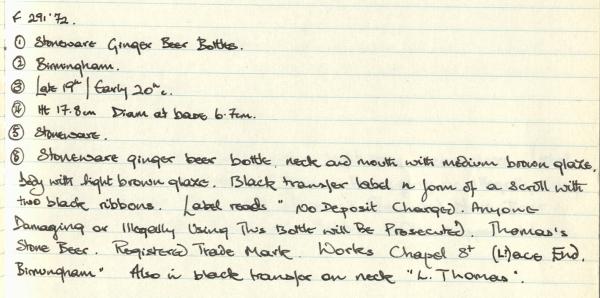 F 291'72.
① Stoneware Ginger Beer Bottles.
② Birmingham.
③ Late 19th | Early 20th c.
④ Ht 17.8cm Diam at base 6.7cm.
⑤ Stoneware.
⑥ Stoneware ginger beer bottle, neck and mouth with medium brown glaze,
body with light brown glaze. Black transfer label in form of a scroll with
two black ribbons. Label reads " No Deposit Charged. Anyone
Damaging or Illegally Using This Bottle will Be Prosecuted. Thomas's
Stone Beer. Registered Trade Mark. Works Chapel St End.
Birmingham" Also in black transfer on neck "L. Thomas".